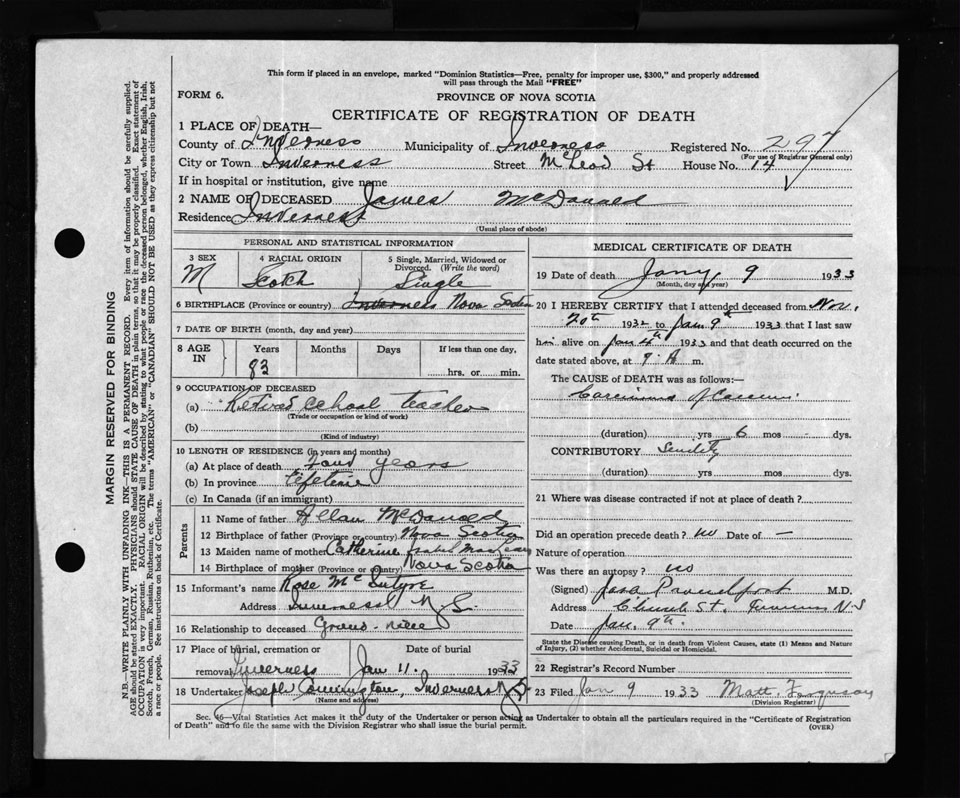 This form if placed in an envelope, marked "Dominion Statistics—Free, penalty for improper use, $300," and properly addressed
will pass through the Mail "FREE"
FORM 6.
PROVINCE OF NOVA SCOTIA
CERTIFICATE OF REGISTRATION OF DEATH
1 PLACE OF DEATH—
County of Inverness Municipality of Inverness Registered No. 297
(For use of Registrar General only)
City or Town Inverness Street McLeod St House No. 14
If in hospital or institution, give name
2 NAME OF DECEASED James McDonald
Residence Inverness
(Usual place of abode)
PERSONAL AND STATISTICAL INFORMATION
3 SEX M
4 RACIAL ORIGIN Scotch
5 Single, Married, Widowed or Divorced. (Write the word) Single
6 BIRTHPLACE (Province or country) Inverness Nova Scotia
7 DATE OF BIRTH (month, day and year)
8 AGE IN Years Months Days If less than one day,
83 hrs. or min.
9 OCCUPATION OF DECEASED
(a) Retired School teacher
(Trade or occupation or kind of work)
(b)
(Kind of industry)
10 LENGTH OF RESIDENCE (in years and months)
(a) At place of death years
(b) In province Lifetime
(c) In Canada (if an immigrant)
Parents
11 Name of father Allan McDonald
12 Birthplace of father (Province or country) Nova Scotia
13 Maiden name of mother Catherine Isabel
14 Birthplace of mother (Province or Country) Nova Scotia
15 Informant's name Rose McIntyre
Address Inverness N.S.
16 Relationship to deceased Grand-niece
17 Place of burial, cremation or Date of burial
removal Inverness Jan 11. 1933
18 Undertaker Joseph Inverness N.S.
(Name and address)
MEDICAL CERTIFICATE OF DEATH
19 Date of death Jany 9 1933
(Month, day and year)
20 I HEREBY CERTIFY that I attended deceased from Nov.
20th 1932 to Jan 9th 1933 that I last saw
him alive on Jan 4th 1933 and that death occurred on the
date stated above, at 9. A m.
The CAUSE of DEATH was as follows:—
Carcinoma of
(duration) yrs 6 mos dys.
CONTRIBUTORY Senility
(duration) yrs mos dys.
21 Where was disease contracted if not at place of death?
Did an operation precede death? no Date of —
Nature of operation
Was there an autopsy? no
(Signed) M.D.
Address Church St. Inverness N-S
Date Jan. 9th.
State the Disease causing Death, or in death from Violent Causes, state (1) Means and Nature
of Injury, (2) whether Accidental, Suicidal or Homicidal.
22 Registrar's Record Number
23 Filed Jan 9 1933 Matt. Ferguson
(Division Registrar)
Sec. 46—Vital Statistics Act makes it the duty of the Undertaker or person acting as Undertaker to obtain all the particulars required in the "Certificate of Registration
of Death" and to file the same with the Division Registrar who shall issue the burial permit.
(OVER)
MARGIN RESERVED FOR BINDING
N.B.—WRITE PLAINLY WITH UNFADING INK—THIS IS A PERMANENT RECORD. Every item of information should be carefully supplied.
AGE should be stated EXACTLY. PHYSICIANS should STATE CAUSE OF DEATH in plain terms, so that it may be properly classified. Exact statement of
OCCUPATION is very important. RACIAL ORIGIN will be described by stating to what people or race the deceased person belonged, whether English, Irish,
Scotch, French, German, Russian, Ruthenian, etc. The terms "AMERICAN" or "CANADIAN" SHOULD NOT BE USED as they express citizenship but not
a race or people. See instructions on back of Certificate.